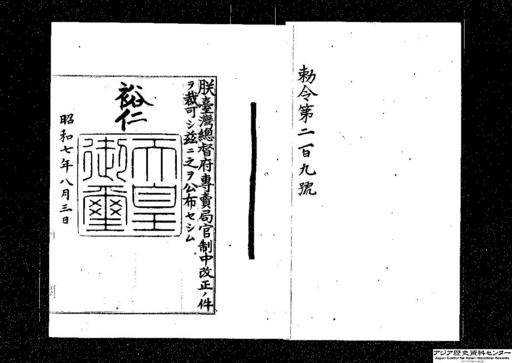 勅令第二百九號
朕臺灣總督府專賣局官制中改正ノ件
ヲ裁可シ茲ニ之ヲ公布セシム
裕仁
天皇
御璽
昭和七年八月三日
アジア歴史資料センター
Japan Center for Asian Historical Records